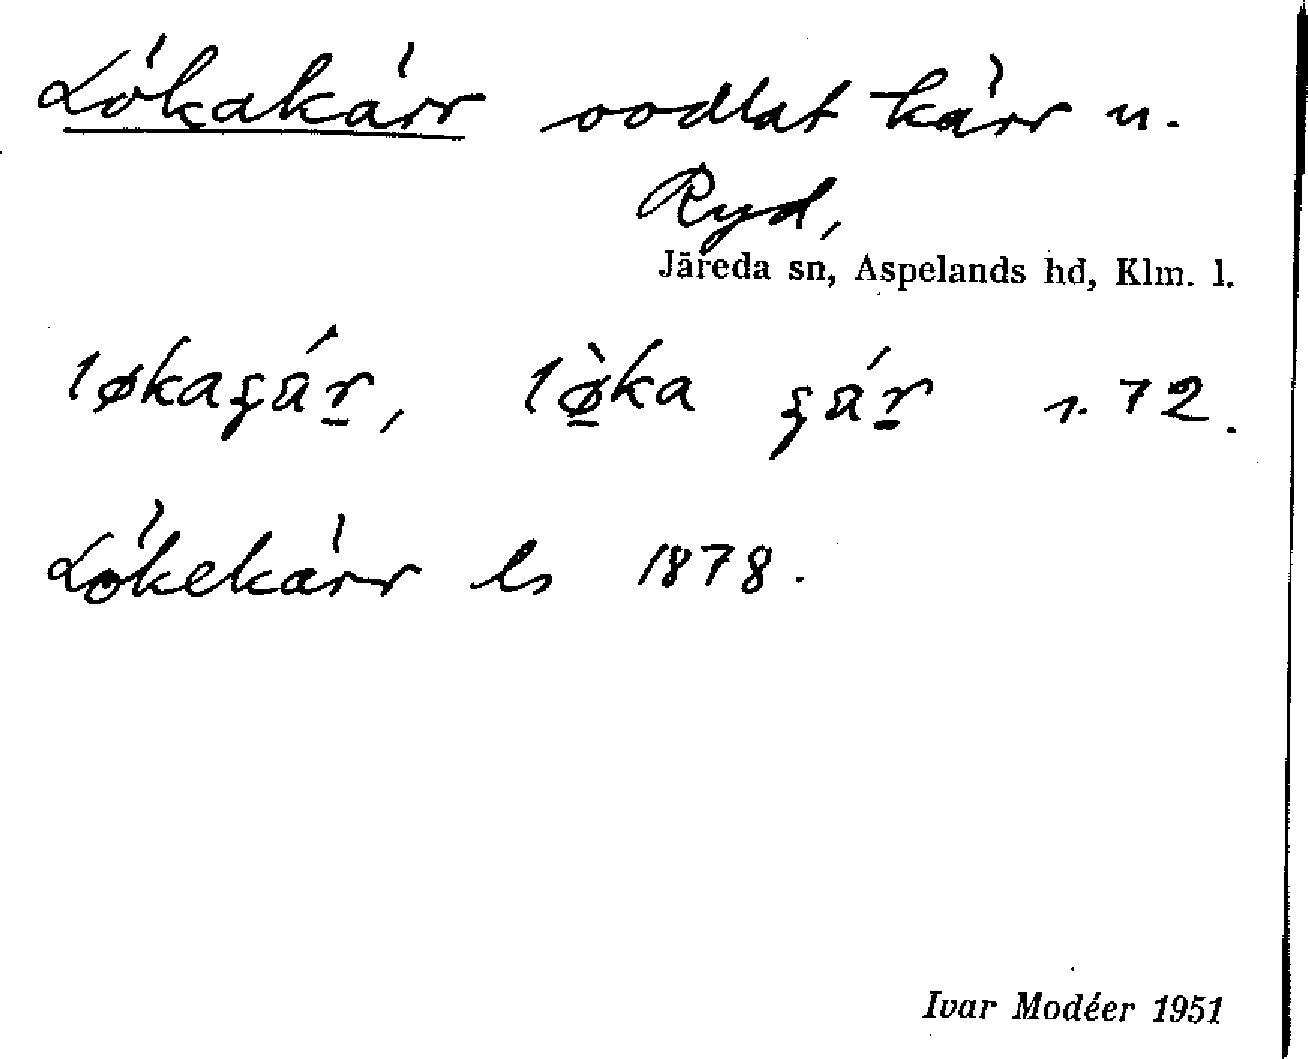 Lökakärr oodlat kärr u.
Ryd,
Järeda sn, Aspelands hd, Klm. l.
løkaʂá͟r, lø̀ka ʂá͟r s. 72.
Lökekärr ls 1878.
Ivar Modéer 1951